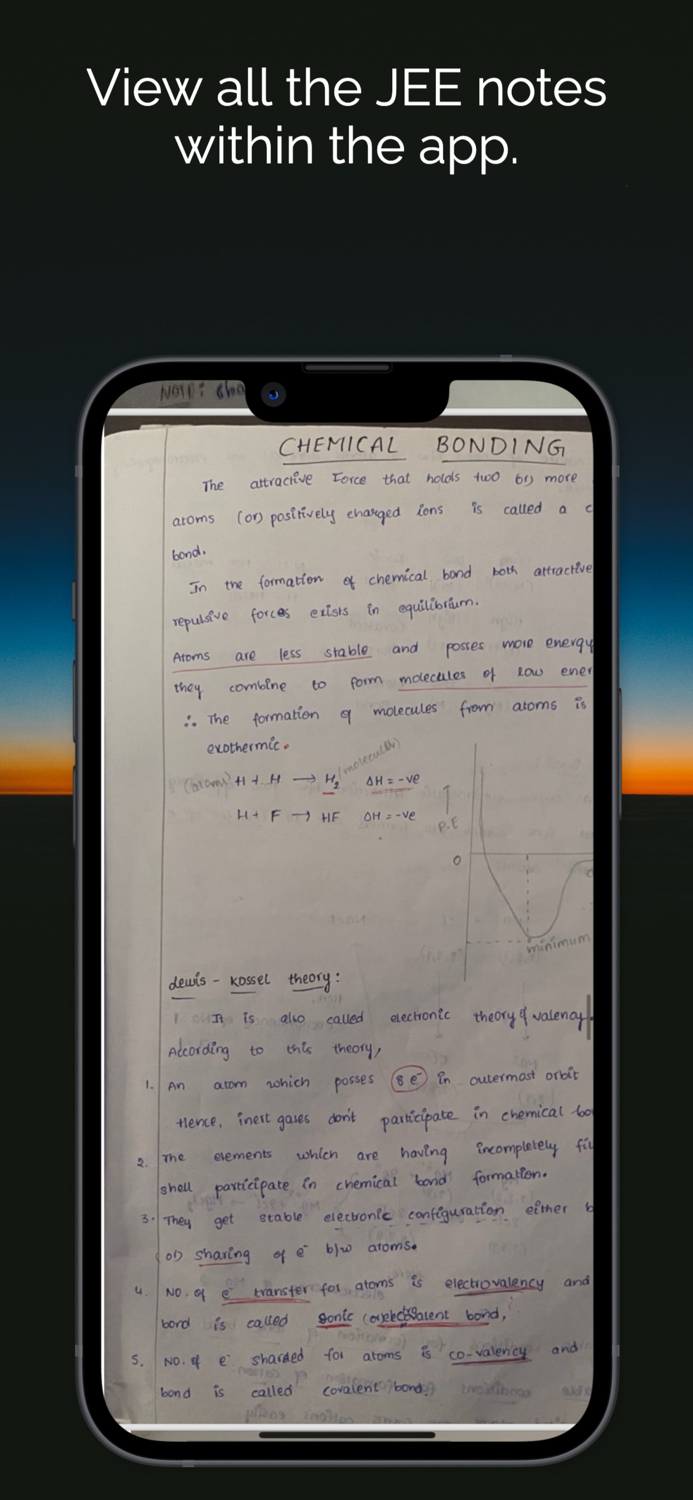 View all the JEE notes
within the app.
NOTE:
CHEMICAL BONDING
The attractive Force that holds two (or) more
atoms (or) positively charged ions is called a c
bond.
In the formation of chemical bond both attractive
repulsive forces exists in equilibrium.
Atoms are less stable and posses more energy
they combine to form molecules of low ener
∴ The formation of molecules from atoms is
exothermic.
(atoms) H + H → H₂ (molecules) ΔH = -ve
H + F → HF ΔH = -ve
P.E
0
minimum
Lewis - Kossel theory:
It is also called electronic theory of valency
According to this theory,
1. An atom which posses 8 e⁻ in outermost orbit
Hence, inert gases don't participate in chemical bo
2. The elements which are having incompletely fil
shell participate in chemical bond formation.
3. They get stable electronic configuration either b
(or) sharing of e⁻ b/w atoms.
4. NO. of e⁻ transfer for atoms is electrovalency and
bond is called Ionic (or) electrovalent bond,
5. NO. of e⁻ sharded for atoms is co-valency and
bond is called covalent bond.